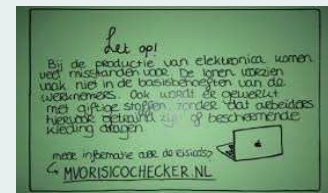 Let op!
Bij de productie van elektronica komen
veel misstanden voor. De lonen voorzien
vaak niet in de basisbehoeften van de
werknemers. Ook wordt er gewerkt
met giftige stoffen, zonder dat arbeiders
hiervoor getraind zijn of beschermende
kleding dragen.
meer informatie over de risico's?
MVORISICOCHECKER.NL